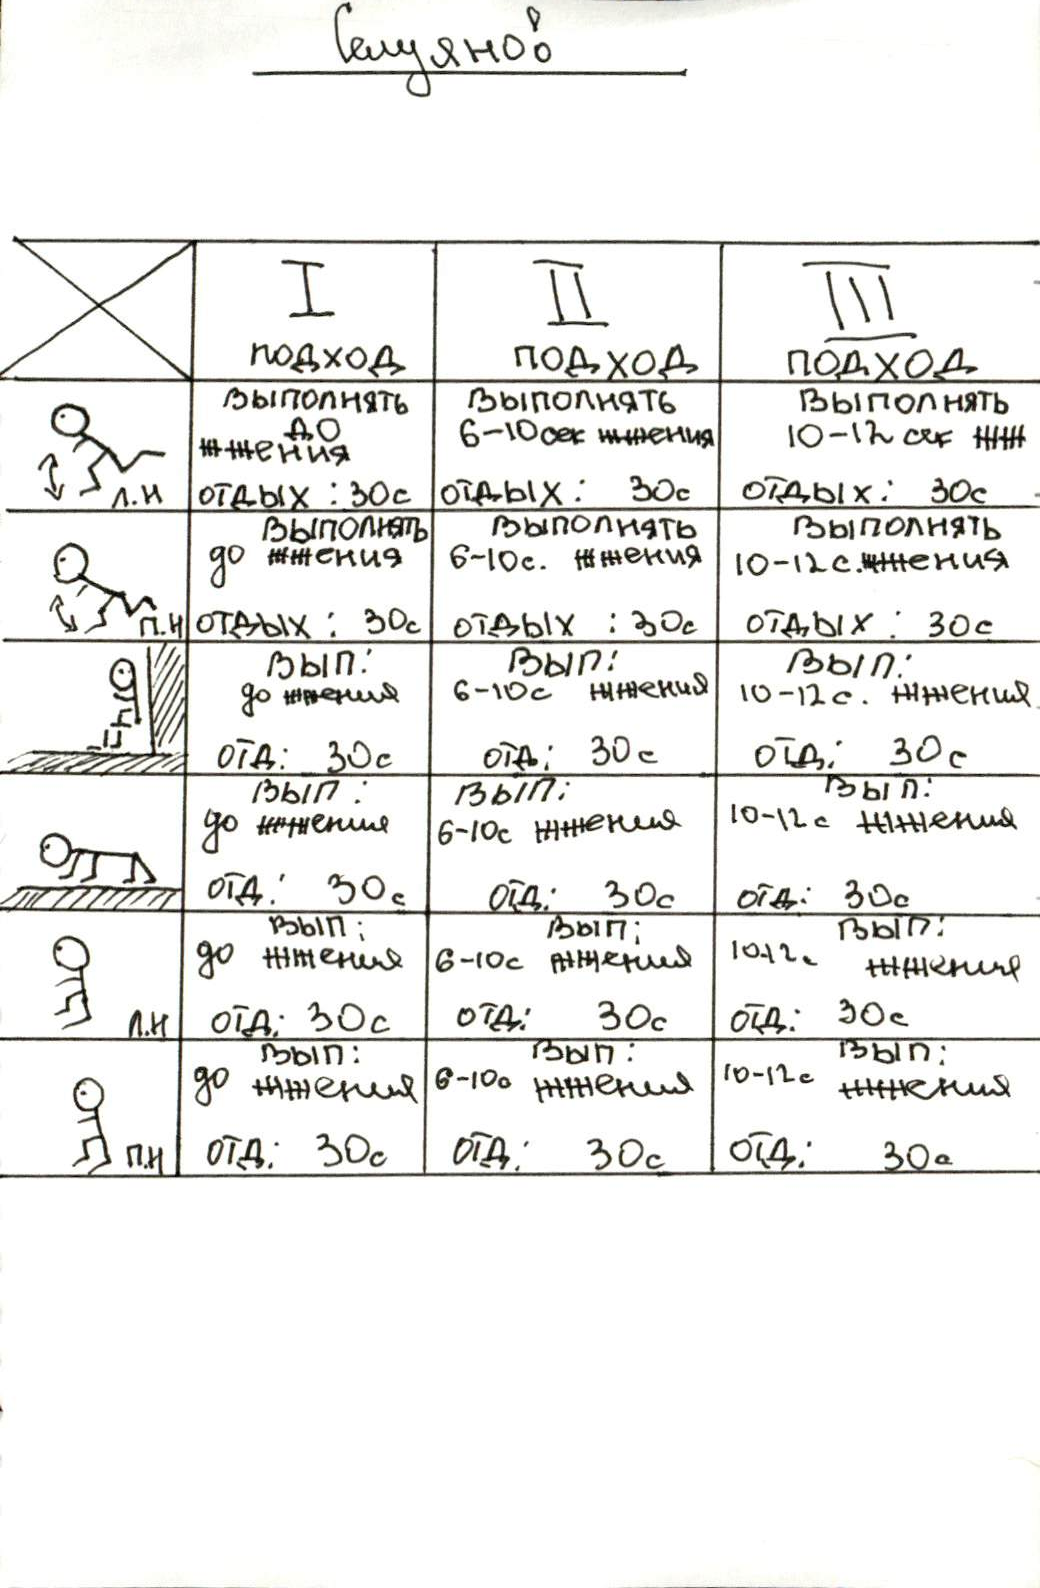 Селуянов
I
II
III
ПОДХОД
ПОДХОД
ПОДХОД
ВЫПОЛНЯТЬ
ДО
жжения
ОТДЫХ : 30с
ВЫПОЛНЯТЬ
6-10сек жжения
ОТДЫХ : 30с
ВЫПОЛНЯТЬ
10-12 сек жж
ОТДЫХ : 30с
Л.Н
ВЫПОЛНЯТЬ
до жжения
ОТДЫХ : 30с
ВЫПОЛНЯТЬ
6-10с. жжения
ОТДЫХ : 30с
ВЫПОЛНЯТЬ
10-12с. жжения
ОТДЫХ : 30с
П.Н
ВЫП:
до жжения
ОТД: 30с
ВЫП:
6-10с жжения
ОТД: 30с
ВЫП:
10-12с. жжения
ОТД: 30с
ВЫП:
до жжения
ОТД: 30с
ВЫП:
6-10с жжения
ОТД: 30с
ВЫП:
10-12с жжения
ОТД: 30с
ВЫП:
до жжения
ОТД: 30с
ВЫП:
6-10с жжения
ОТД: 30с
ВЫП:
10-12с
жжения
ОТД: 30с
Л.Н
ВЫП:
до жжения
ОТД: 30с
ВЫП:
6-10с жжения
ОТД: 30с
ВЫП:
10-12с жжения
ОТД: 30с
П.Н